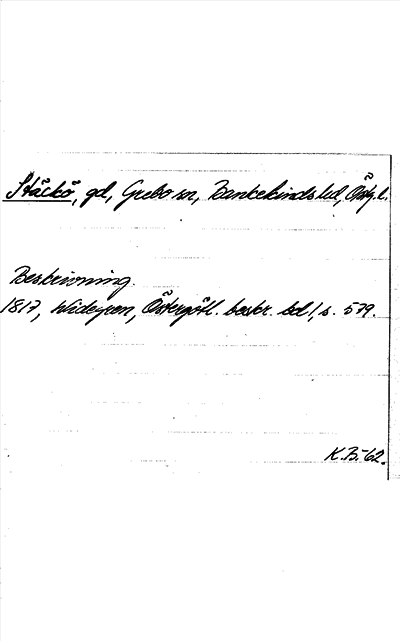 Stäckö, gd, Grebo sn, Bankekinds hd, Östg.l.
Beskrivning.
1817, Widegren, Östergötl. beskr. bd 1, s. 579.
K.B.-62.